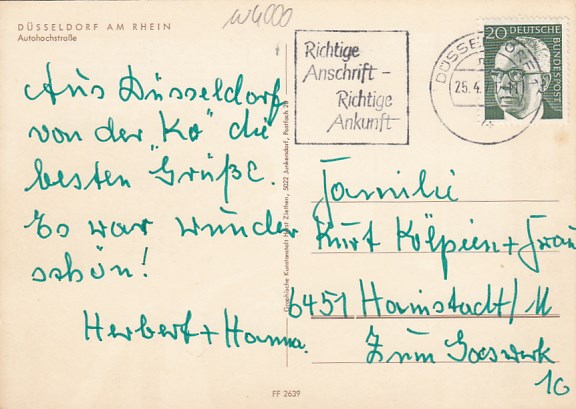 DÜSSELDORF AM RHEIN
Autohochstraße
w4000
Richtige
Anschrift -
Richtige
Ankunft
DÜSSELDORF
25.4.
20 DEUTSCHE
BUNDESPOST
Aus Düsseldorf
von der „Kö" die
besten Grüße.
Es war wunder
schön!
Herbert + Hanna.
Graphische Kunstanstalt Horst Ziethen, 5022 Junkersdorf, Postfach 20
Familie
Kurt Kölpien + Frau
6451 Hainstadt/M
Zum Gaswerk
10
FF 2639